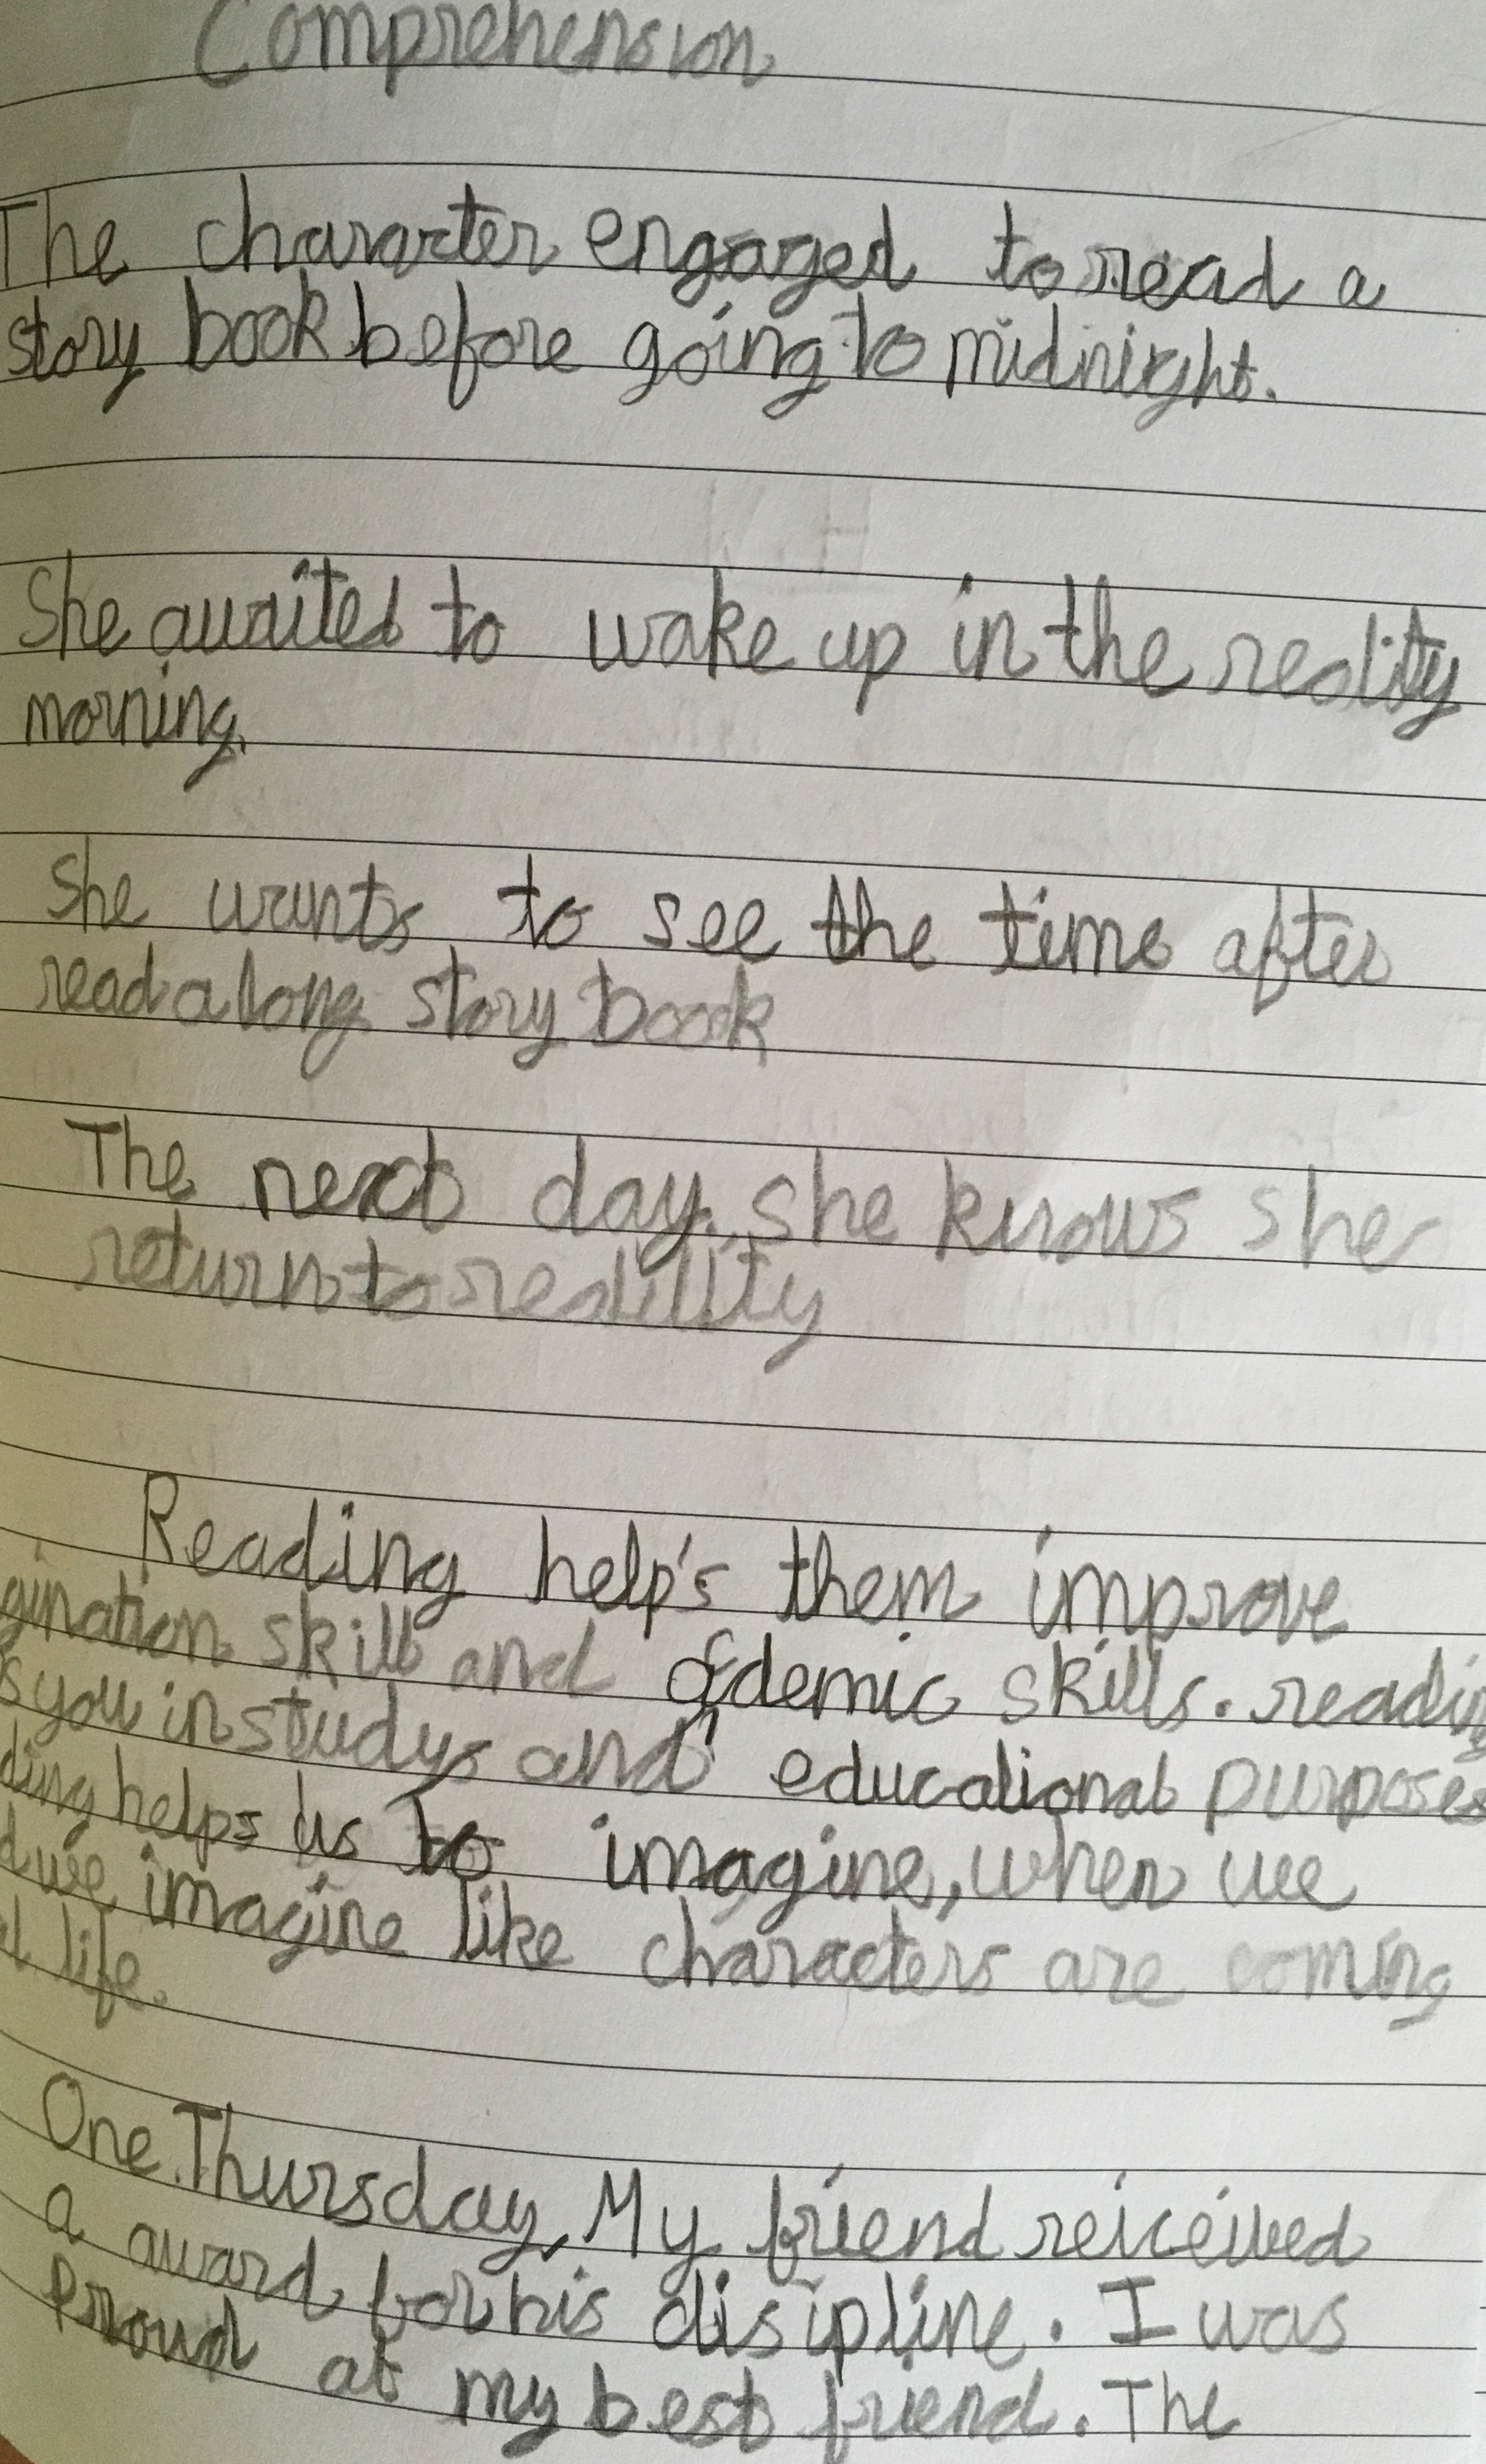 Comprehension
The chararter engaged to read a
story book before going to midnight.
She awaited to wake up in the reality
morning.
She wants to see the time after
read a long story book
The next day. she knows she
return to realility
Reading help's them improve
gination skill and demic skills. readin
s you in study and educational purposes
ding helps us to imagine, when we
d we imagine like characters are coming
l life.
One Thursday, My friend reiceived
a award for his disipline. I was
Proud at my best friend. The